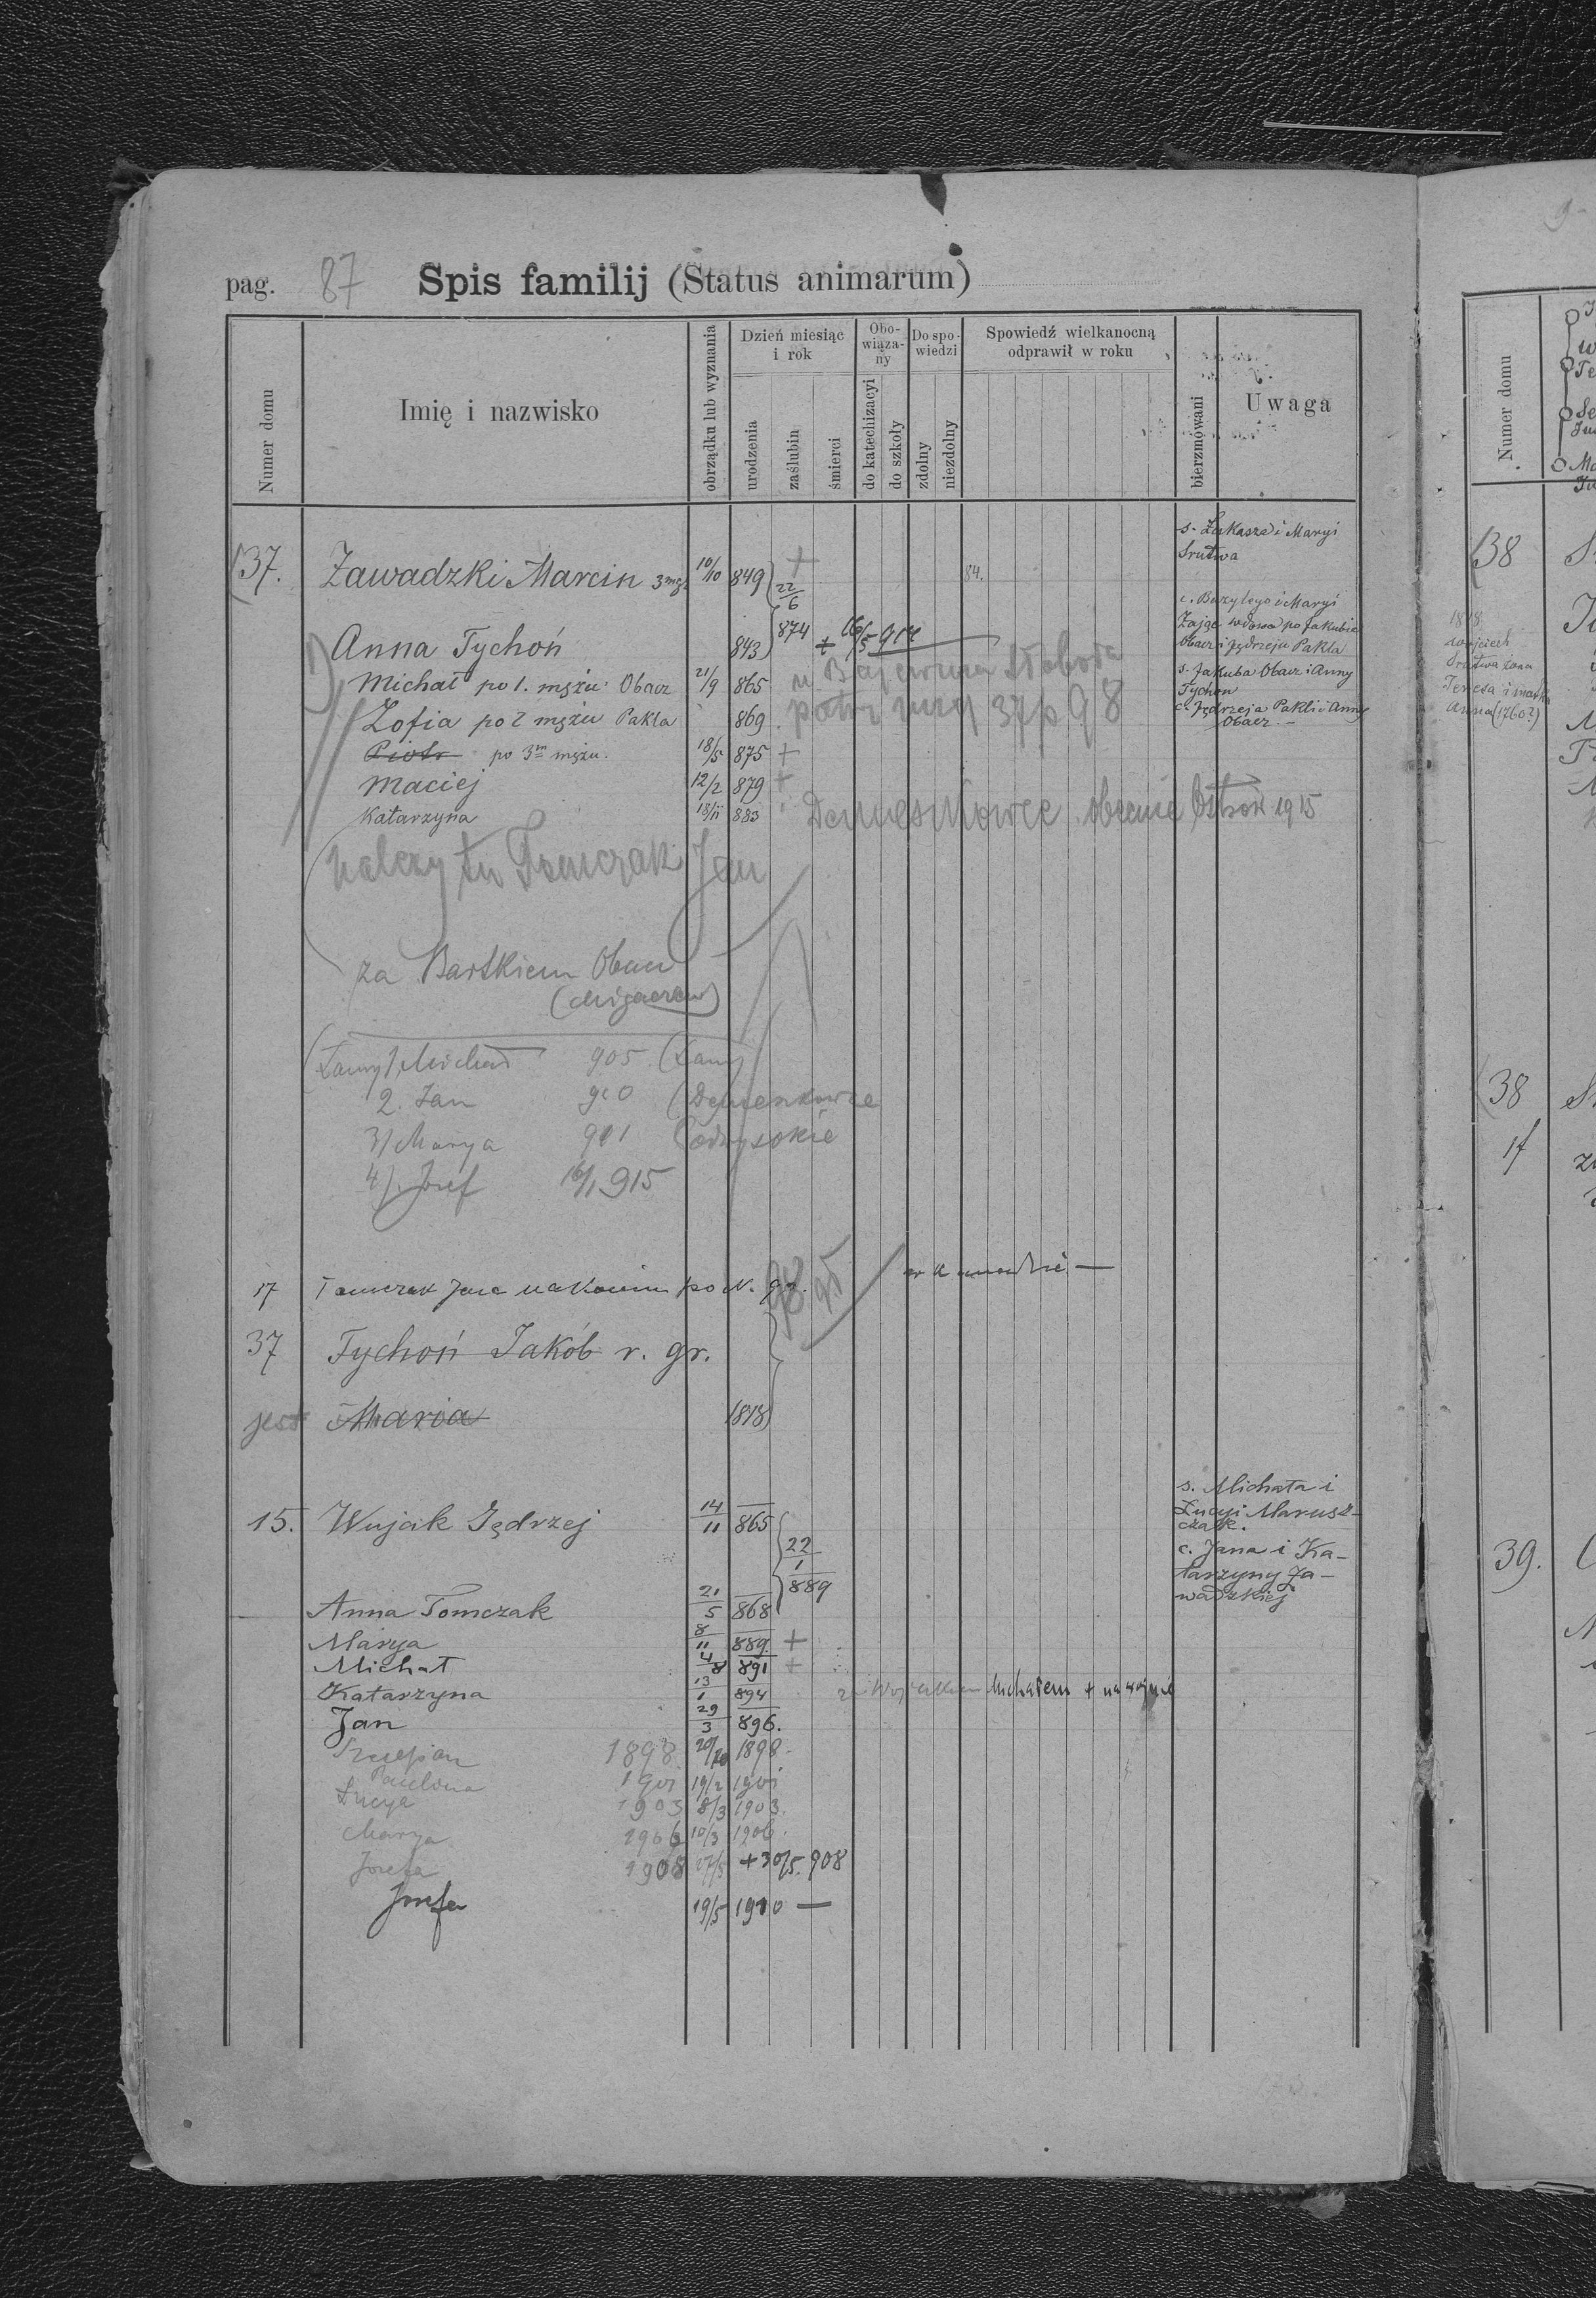 pag. 87 Spis familij (Status animarum)
Numer domu
Imię i nazwisko
obrządku lub wyznania
Dzień miesiąc i rok
urodzenia
zaślubin
śmierci
Obowiązany
do katechizacyi
do szkoły
Do spowiedzi
zdolny
niezdolny
Spowiedź wielkanocną odprawił w roku
bierzmowani
Uwaga
s. Łukasza i Maryi
Srutwa
37. Zawadzki Marcin 3 mąż 10/10 849 + 84.
22/6 874
c. Bazylego i Maryi
Zając wdowa po Jakubie
Obacz i Jędrzeju Pakla
Anna Tychoń 843 + 16/5
Michał po 1. mężu Obacz 21/9 865
s. Jakuba Obacz i Anny
Tychoń
Zofia po 2 mężu Pakla 869. 37 p 98
c. Jędrzeja Pakli i Anny
Obacz. –
Piotr po 3m mężu. 18/5 875 +
Maciej 12/2 879 +
Katarzyna 18/11 883 obecnie Ostrów 1915
należy tu Tomczak Jan
za Bartkiem Obacz
1, Michał 905
2. Jan 910
3) Marya 911
4) Josef 16/1 915
17 Tomczak Jan
37 Tychoń Jakób r. gr.
jest Maria 1818
15. Wujcik Jędrzej 14/11 865
s. Michała i
Łucyi Marusz-
czak.
22/1 889
c. Jana i Ka-
tarzyny Za-
wadzkiej
Anna Tomczak 21/5 868
Marya 8/11 889. +
Michał 4/8 891 +
Katarzyna 13/1 894 Michałem + na wojnie
Jan 29/3 896.
Szczepan 1898 20/10 1898
Paulina 1901 19/2 1901
Łucya 1903 8/3 1903.
Marya 1906 10/3 1906.
Josefa 1908 + 30/5. 908
Josefa 19/5 1910 —
Numer domu
38
1818
wojciech
Srutwa żona
Teresa i matka
Anna (1760?)
38
17
39.